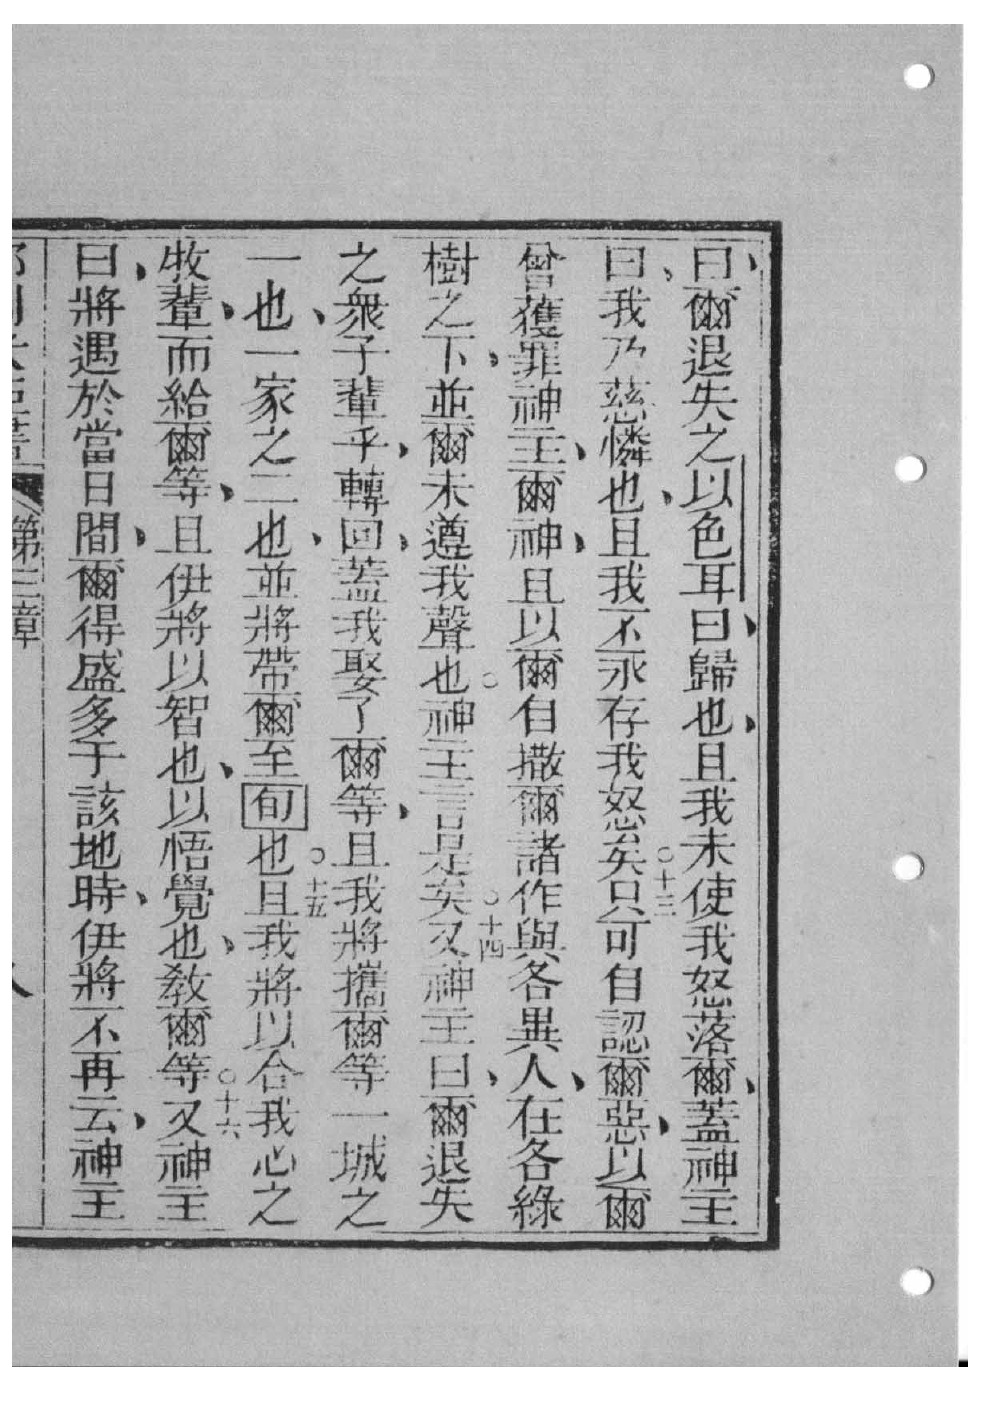 曰、爾退失之以色耳曰、歸也、且我未使我怒落爾、蓋神主
曰、我乃慈憐也、且我不永存我怒矣○十三只可自認爾惡、以爾
曾獲罪神主、爾神、且以爾自撒爾諸作與各異人、在各綠
樹之下、並爾未遵我聲也○神主言是矣○十四又神主曰、爾退失
之衆子輩乎、轉回、蓋我娶了爾等、且我將攜爾等一城之
一也、一家之二也、並將帶爾至旬也○十五且我將以合我心之
牧輩、而給爾等、且伊將以智也、以悟覺也、敎爾等○十六又神主
曰、將遇於當日間、爾得盛多于該地時、伊將不再云、神主
第三章